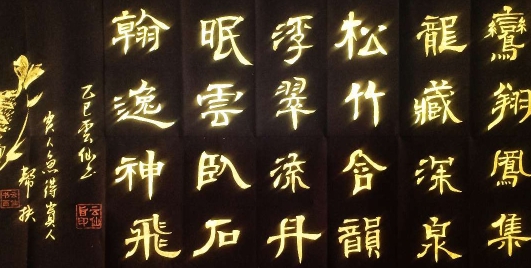 鸞翔鳳集
龍藏深泉
松竹含韻
浮翠流丹
眠雲臥石
翰逸神飛
乙巳雲仙书
贵人鱼得贵人
帮扶
云仙